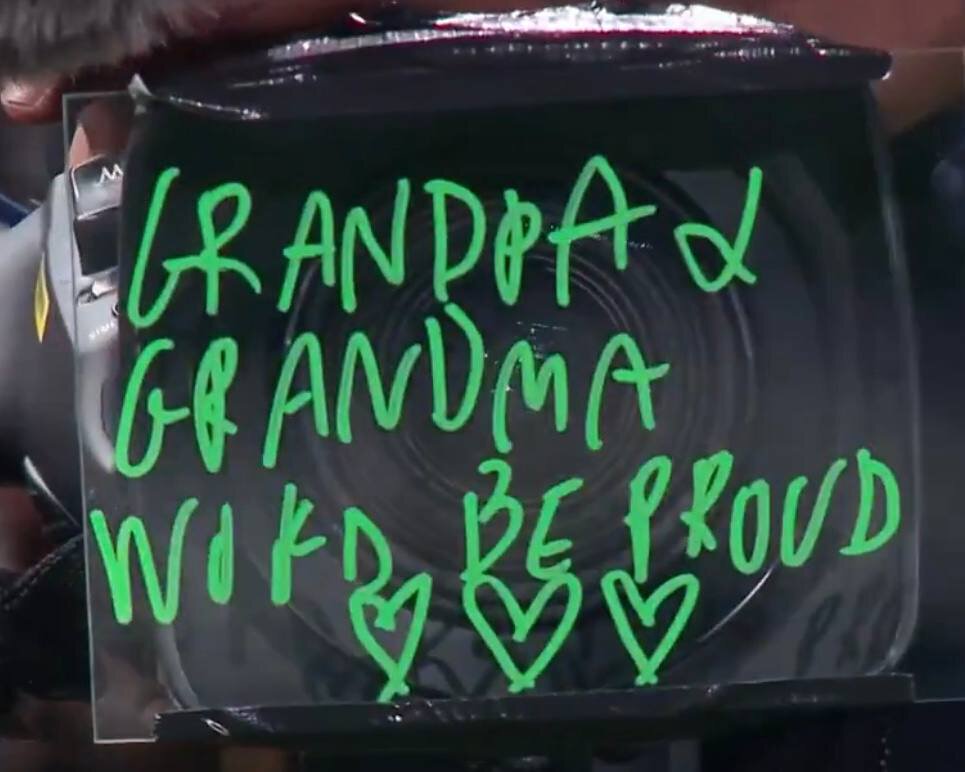 GRANDPA &
GRANDMA
WOKD BE PROUD
♡♡♡